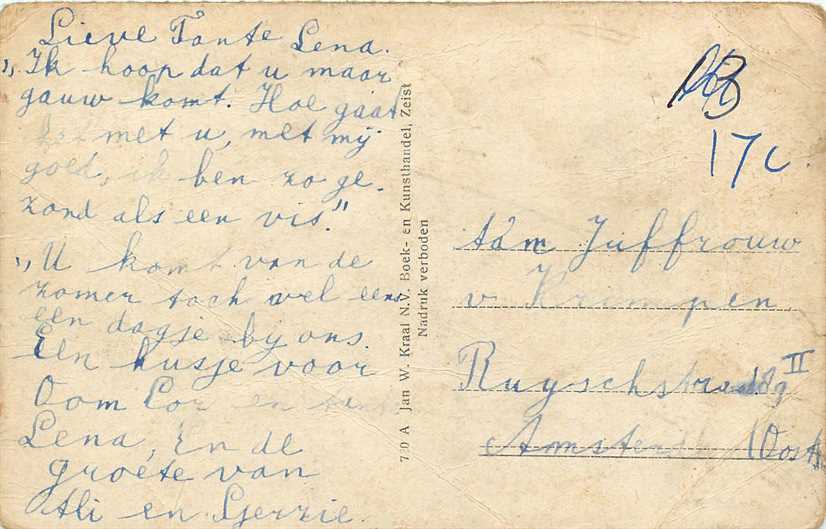 Lieve Tante Lena.
„Ik hoop dat u maar
gauw komt. Hoe gaat
het met u, met mij
goed, ik ben zo ge-
zond als een vis."
„U komt van de
zomer toch wel eens
een dagje bij ons.
Een kusje voor
Oom Cor en tante
Lena, En de
groete van
Ali en
720 A Jan W. Kraal N.V. Boek- en Kunsthandel, Zeist
Nadruk verboden
17c
aan Juffrouw
v Krimpen
Ruyschstraat II
Amsterdam Oost